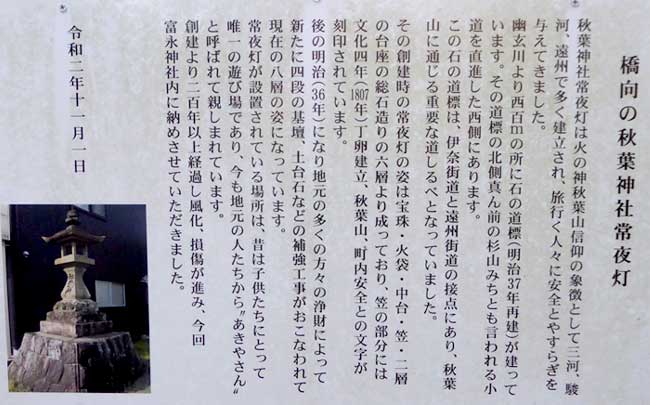 橋向の秋葉神社常夜灯
秋葉神社常夜灯は火の神秋葉山信仰の象徴として三河、駿
河、遠州で多く建立され、旅行く人々に安全とやすらぎを
与えてきました。
幽玄川より西百mの所に石の道標(明治37年再建)が建って
います。その道標の北側真ん前の杉山みちとも言われる小
道を直進した西側にあります。
この石の道標は、伊奈街道と遠州街道の接点にあり、秋葉
山に通じる重要な道しるべとなっていました。
その創建時の常夜灯の姿は宝珠・火袋・中台・笠・二層
の台座の総石造りの六層より成っており、笠の部分には
文化四年(1807年)丁卯建立、秋葉山、町内安全との文字が
刻印されています。
後の明治(36年)になり地元の多くの方々の浄財によって
新たに四段の基壇、土台石などの補強工事がおこなわれて
現在の八層の姿になっています。
常夜灯が設置されている場所は、昔は子供たちにとって
唯一の遊び場であり、今も地元の人たちから〝あきやさん〟
と呼ばれて親しまれています。
創建より二百年以上経過し風化、損傷が進み、今回
富永神社内に納めさせていただきました。
令和二年十一月一日